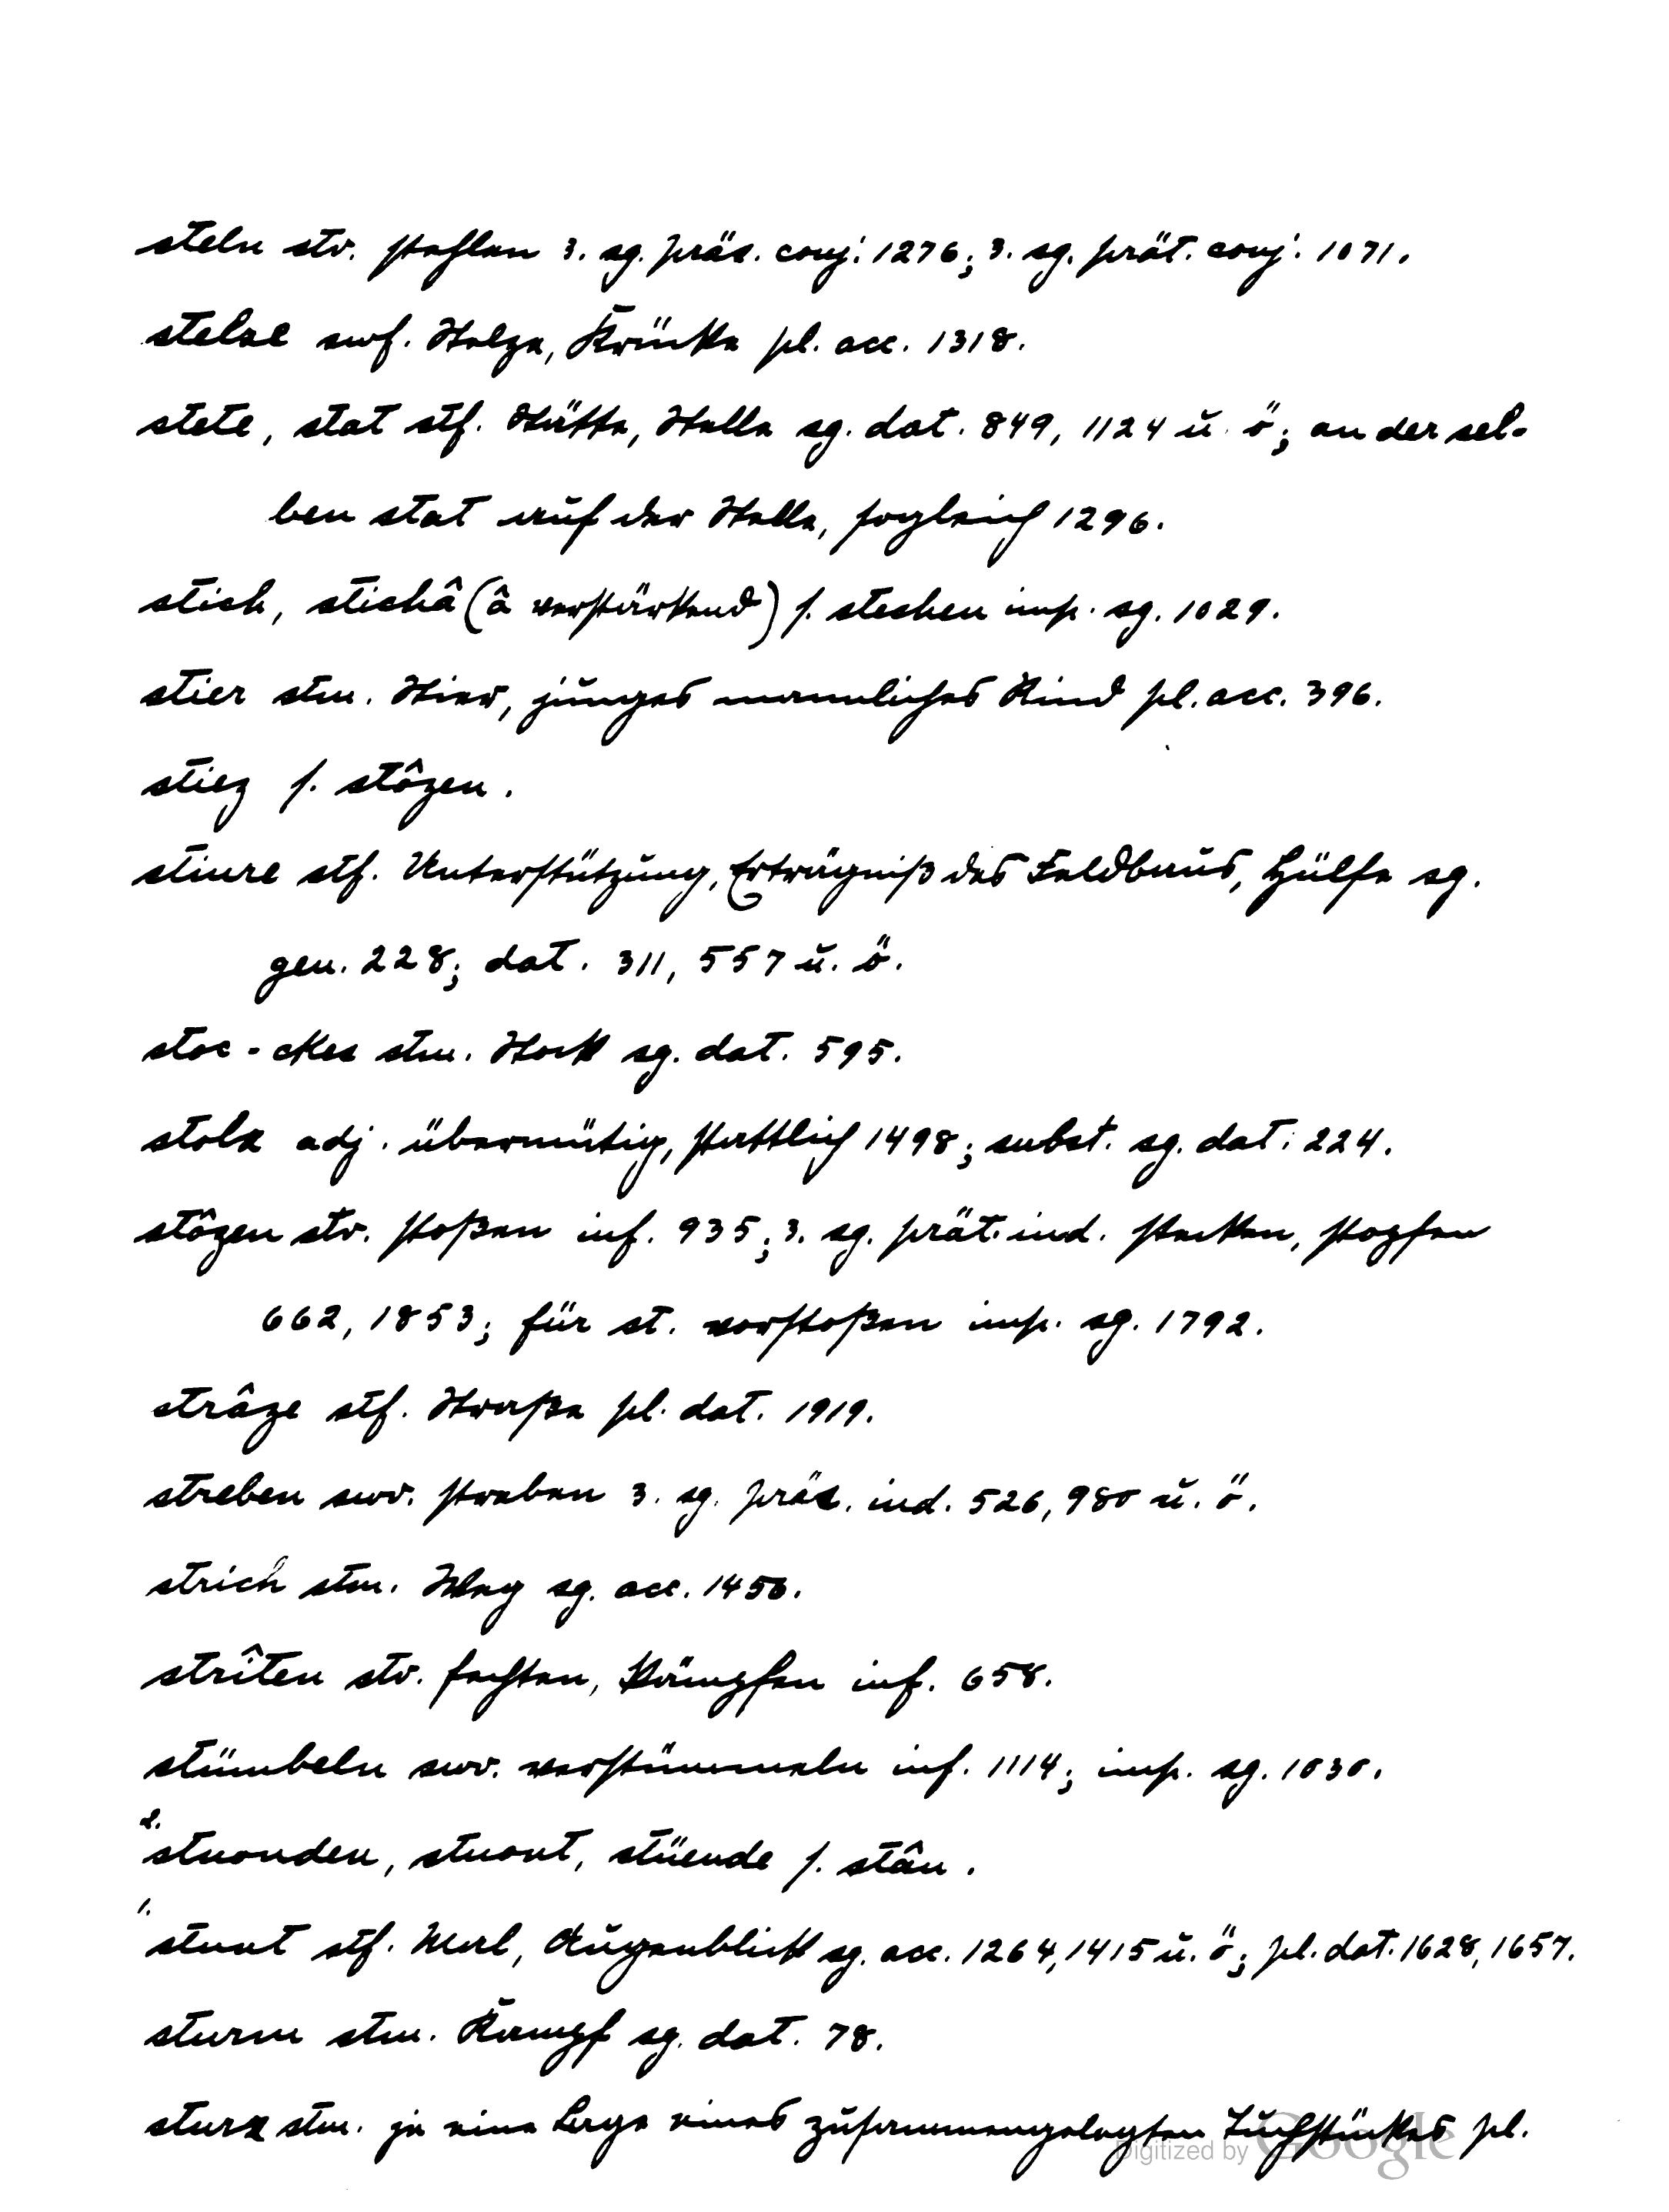 steln stv. stehlen 3. sg. präs. conj. 1276; 3. sg. prät. conj. 1071.
stelze swf. Stelze, Krücke pl. acc. 1318.
stete, stat stf. Stätte, Stelle sg. dat. 849, 1124 u. ö; an der sel-
ben stat auf der Stelle, sogleich 1296.
stich, stichâ (â verstärkend) s. stechen imp. sg. 1029.
stier stm. Stier, junges männliches Rind pl. acc. 396.
stiez s. stôzen.
stiure stf. Unterstützung, Erträgniß des Feldbaus, Hülfe sg.
gen. 228; dat. 311, 557 u. ö.
stoc -ckes stm. Stock sg. dat. 595.
stolz adj. übermütig, stattlich 1498; subst. sg. dat. 224.
stôzen stv. stoßen inf. 935; 3. sg. prät. ind. stecken, stopfen
662, 1853; für st. vorstoßen imp. sg. 1792.
strâze stf. Straße pl. dat. 1919.
streben swv. streben 3. sg. präs. ind. 526, 980 u. ö.
strich stm. Weg sg. acc.
strîten stv. fechten, kämpfen inf. 658.
stümbeln swv. verstümmeln inf. 1114; imp. sg. 1030.
2. stuonden, stuont, stüende s. stân.
1. stunt stf. Mal, Augenblick sg. acc. 1264, 1415 u. ö; pl. dat. 1628, 1657.
sturm stm. Kampf sg. dat. 78.
sturz stm. je eine Lage eines zusammengelegten Tuchstückes pl.
Digitized by Google